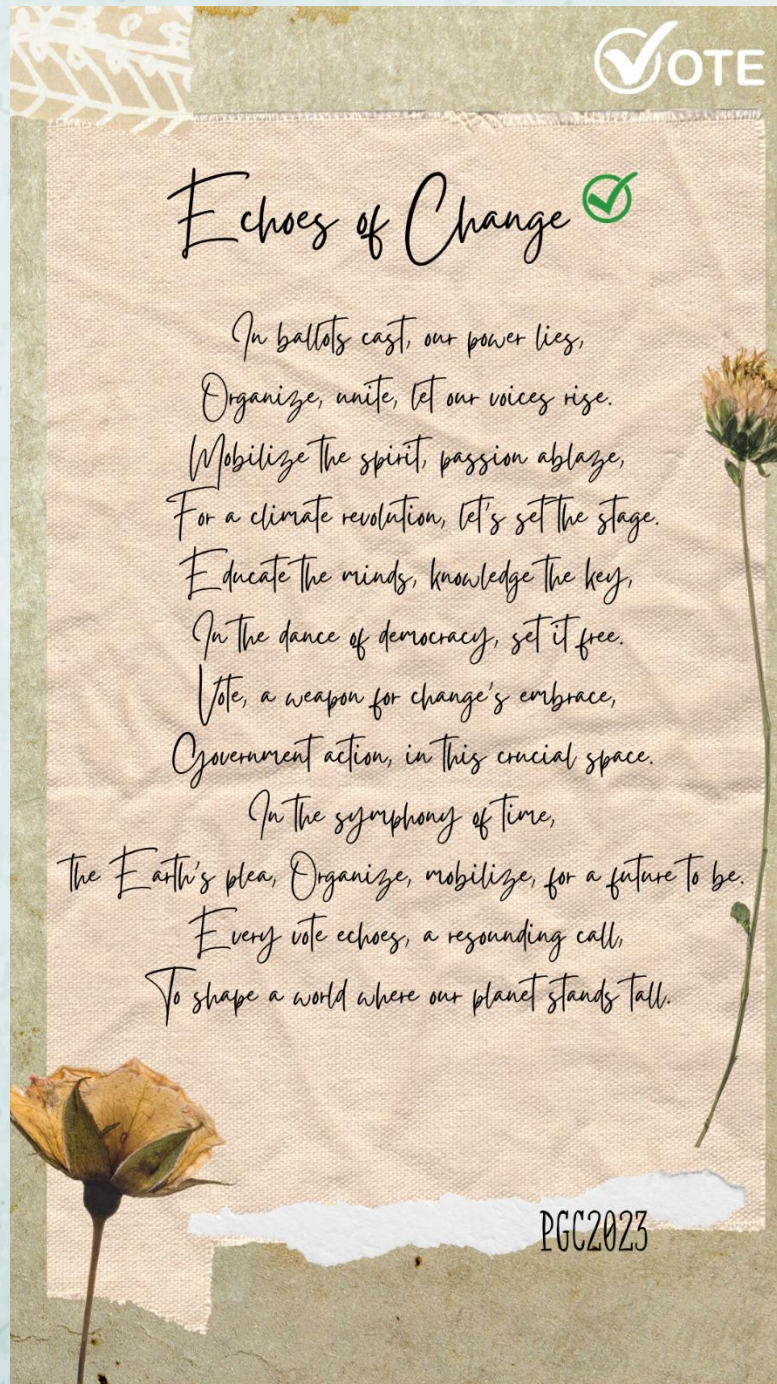 VOTE
Echoes of Change
In ballots cast, our power lies,
Organize, unite, let our voices rise.
Mobilize the spirit, passion ablaze,
For a climate revolution, let's set the stage.
Educate the minds, knowledge the key,
In the dance of democracy, set it free.
Vote, a weapon for change's embrace,
Government action, in this crucial space.
In the symphony of time,
the Earth's plea, Organize, mobilize, for a future to be.
Every vote echoes, a resounding call,
To shape a world where our planet stands tall.
PGC2023